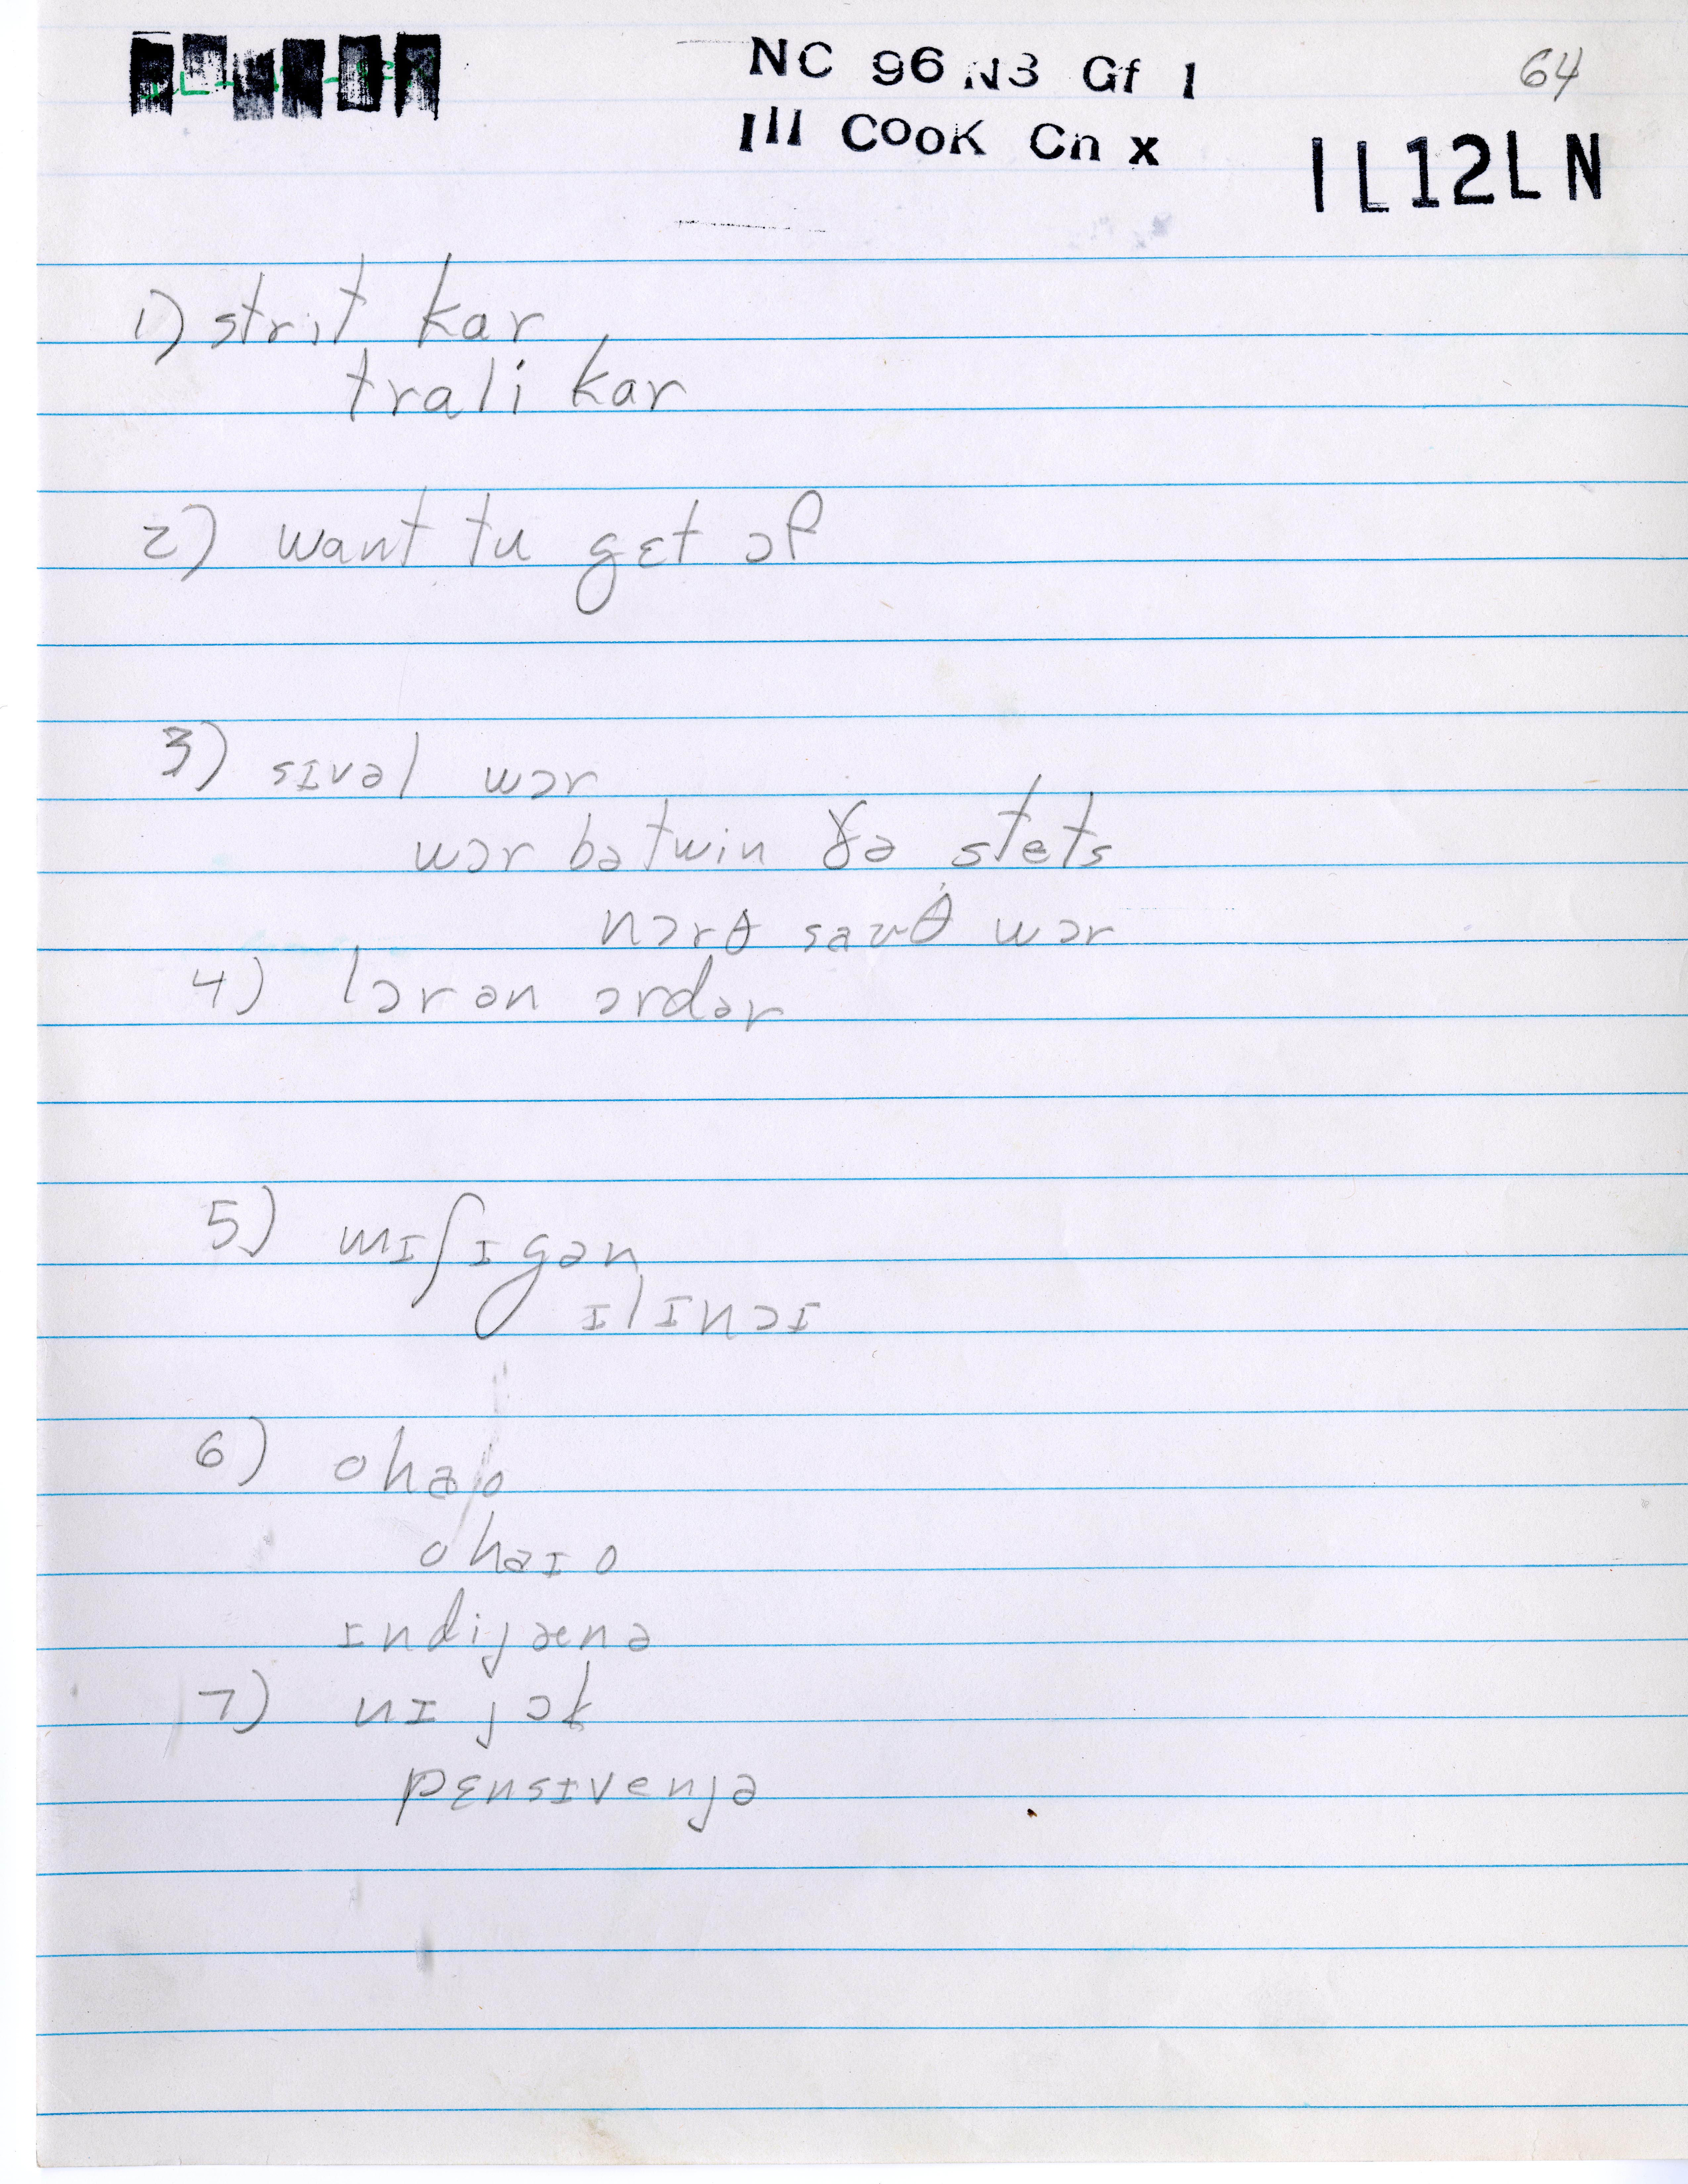 NC 96 N3 Gf 1
64
Ill COOK Cn x
IL12LN
1) strit kar
trali kar
2) want tu gɛt ɔf
3) sɪvəl wɔr
wɔr bətwin ðə stets
nɔrθ saʊθ wɔr
4) lɔr ən ɔrdər
5) mɪʃɪgən
ɪlɪnɔɪ
6) ohajo
ohaɪo
ɪndijænə
7) nɪ jɔk
pɛnsɪvenjə